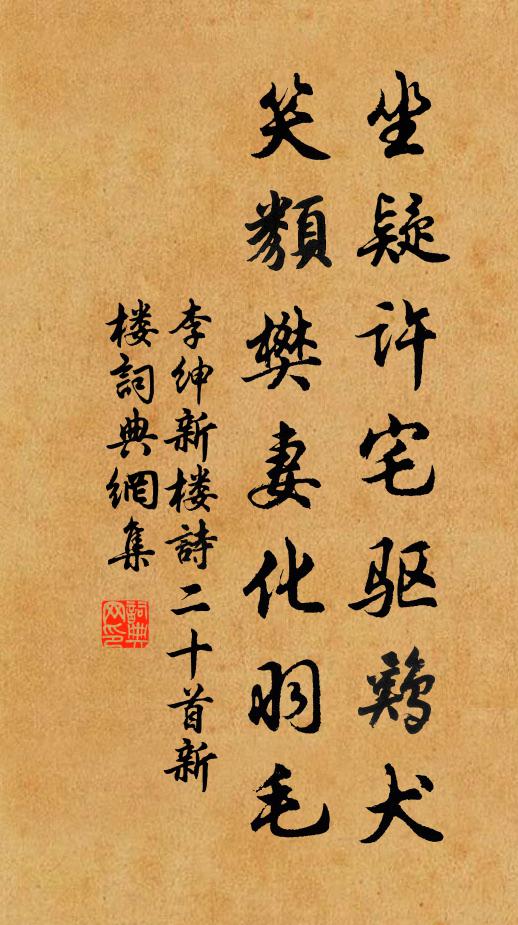 坐疑许宅驱鷄犬
笑類樊妻化羽毛
李绅新楼詩二十首新
楼詞典網集
詞典网印